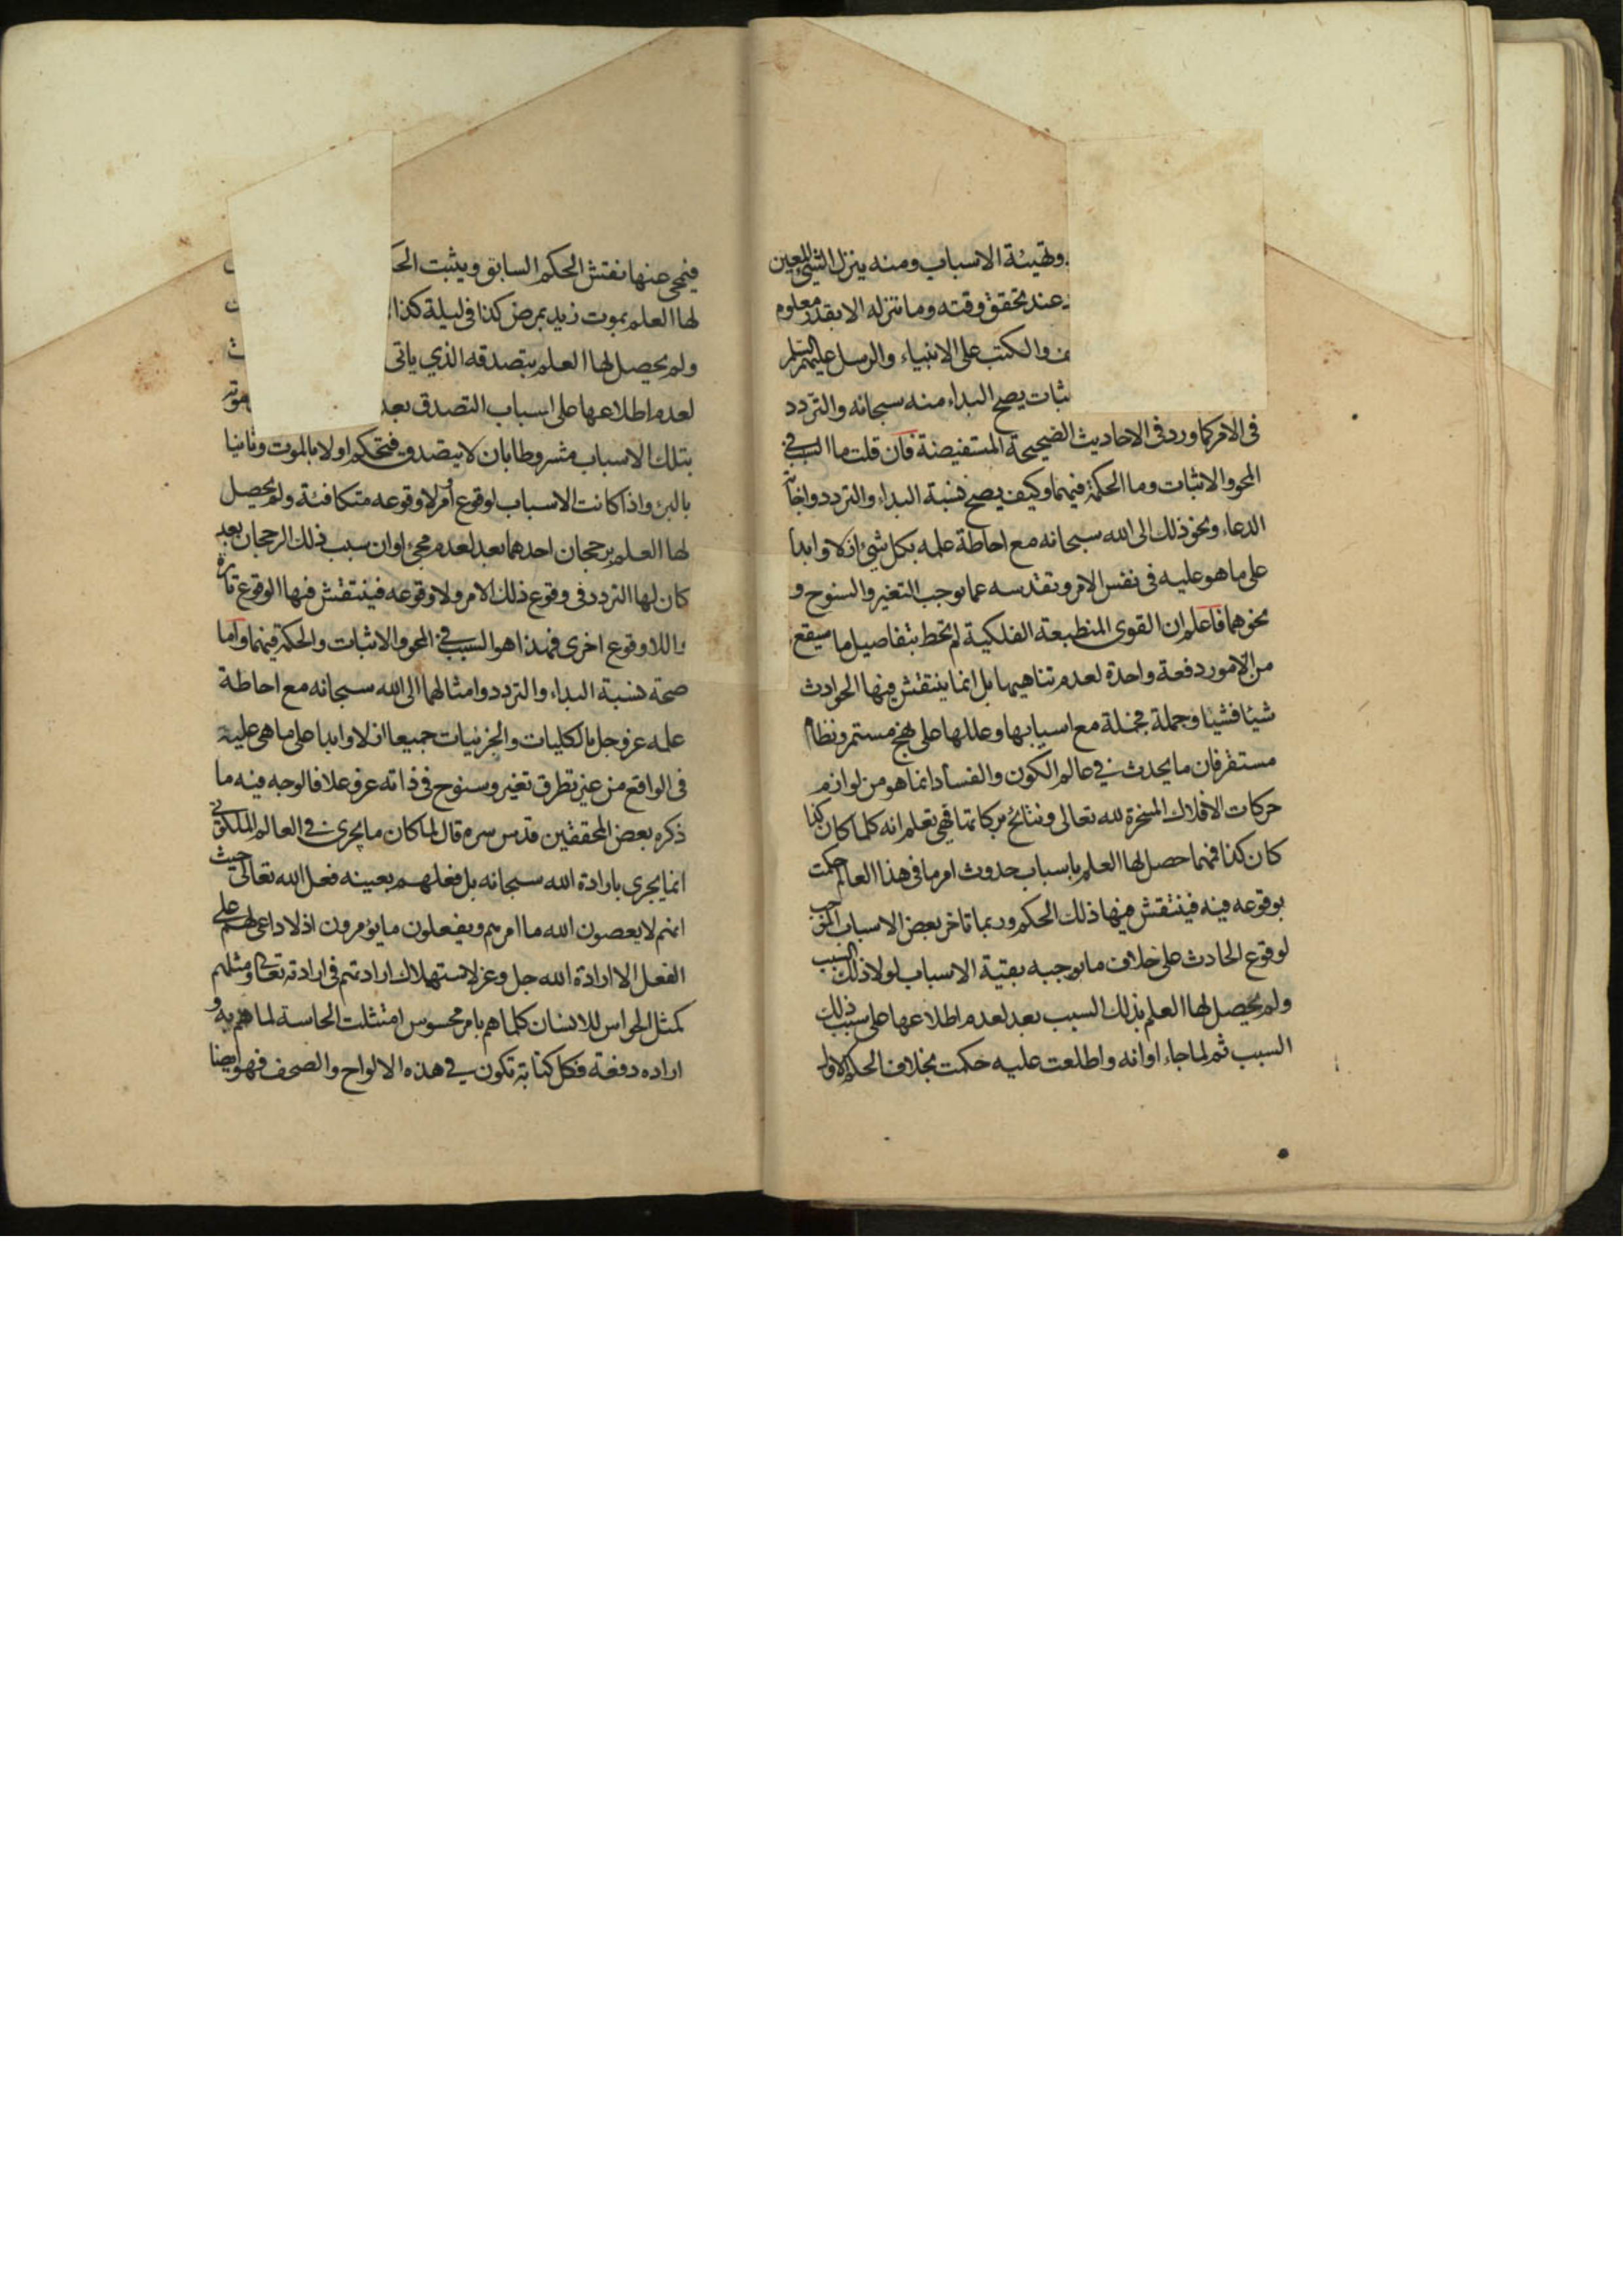 وتهيئة الاسباب ومنه ينزل الشئ المعين
عند تحقق وقته وما ننزله الا بقدر معلوم
والكتب على الانبياء والرسل عليهم السلم
يصح البداء منه سبحانه والتردد
فى الامر كما ورد فى الاحاديث الصحيحة المستفيضة فان قلت ما السبب فى
المحو والاثبات وما الحكمة فيهما وكيف يصح نسبة البداء والتردد واجابة
الدعاء ونحو ذلك الى الله سبحانه مع احاطة علمه بكل شئ ازلا وابدا
على ما هو عليه فى نفس الامر وتقدسه عما يوجب التغير والسنوح و
نحوهما فاعلم ان القوى المنطبعة الفلكية لم تحط بتفاصيل ما سيقع
من الامور دفعة واحدة لعدم تناهيها بل انما ينتقش فيها الحوادث
شيئا فشيئا وجملة فجملة مع اسبابها وعللها على نهج مستمر ونظام
مستقر فان ما يحدث فى عالم الكون والفساد انما هو من لوازم
حركات الافلاك المسخرة لله تعالى ونتائج بركاتها فهى تعلم انه كلما كان كذا
كان كذا فمهما حصل لها العلم باسباب حدوث امر ما فى هذا العالم حكمت
بوقوعه فيه فينتقش فيها ذلك الحكم وربما تاخر بعض الاسباب الموجب
لوقوع الحادث على خلاف ما يوجبه بقية الاسباب لولا ذلك السبب
ولم يحصل لها العلم بذلك السبب بعد لعدم اطلاعها على سبب ذلك
السبب ثم لما جاء اوانه واطلعت عليه حكمت بخلاف الحكم الاول
فيمحى عنها نقش الحكم السابق ويثبت
لها العلم بموت زيد بمرض كذا فى ليلة كذا
ولم يحصل لها العلم بتصدقه الذي ياتى
لعدم اطلاعها على اسباب التصدق بعد
بتلك الاسباب مشروطا بان لا يتصدق فتحكم اولا بالموت وثانيا
بالبرء واذا كانت الاسباب لوقوع امر ولا وقوعه متكافئة ولم يحصل
لها العلم برجحان احدهما بعد لعدم مجئ اوان سبب ذلك الرجحان بعد
كان لها التردد فى وقوع ذلك الامر ولا وقوعه فينتقش فيها الوقوع تارة
واللا وقوع اخرى فهذا هو السبب فى المحو والاثبات والحكمة فيهما واما
صحة نسبة البداء والتردد وامثالهما الى الله سبحانه مع احاطة
علمه عز وجل بالكليات والجزئيات جميعا ازلا وابدا على ما هى عليه
فى الواقع من غير تطرق تغير وسنوح فى ذاته عز وعلا فالوجه فيه ما
ذكره بعض المحققين قدس سره قال لما كان ما يجرى فى العالم الملكوتى
انما يجرى بارادة الله سبحانه بل فعلهم بعينه فعل الله تعالى حيث
انهم لا يعصون الله ما امرهم ويفعلون ما يؤمرون اذ لا داعى لهم على
الفعل الا ارادة الله جل وعز لاستهلاك ارادتهم فى ارادته تعالى ومثلهم
كمثل الحواس للانسان كلما هم بامر محسوس امتثلت الحاسة لما هم به و
اراده دفعة فكل كتابة تكون فى هذه الالواح والصحف فهو ايضا